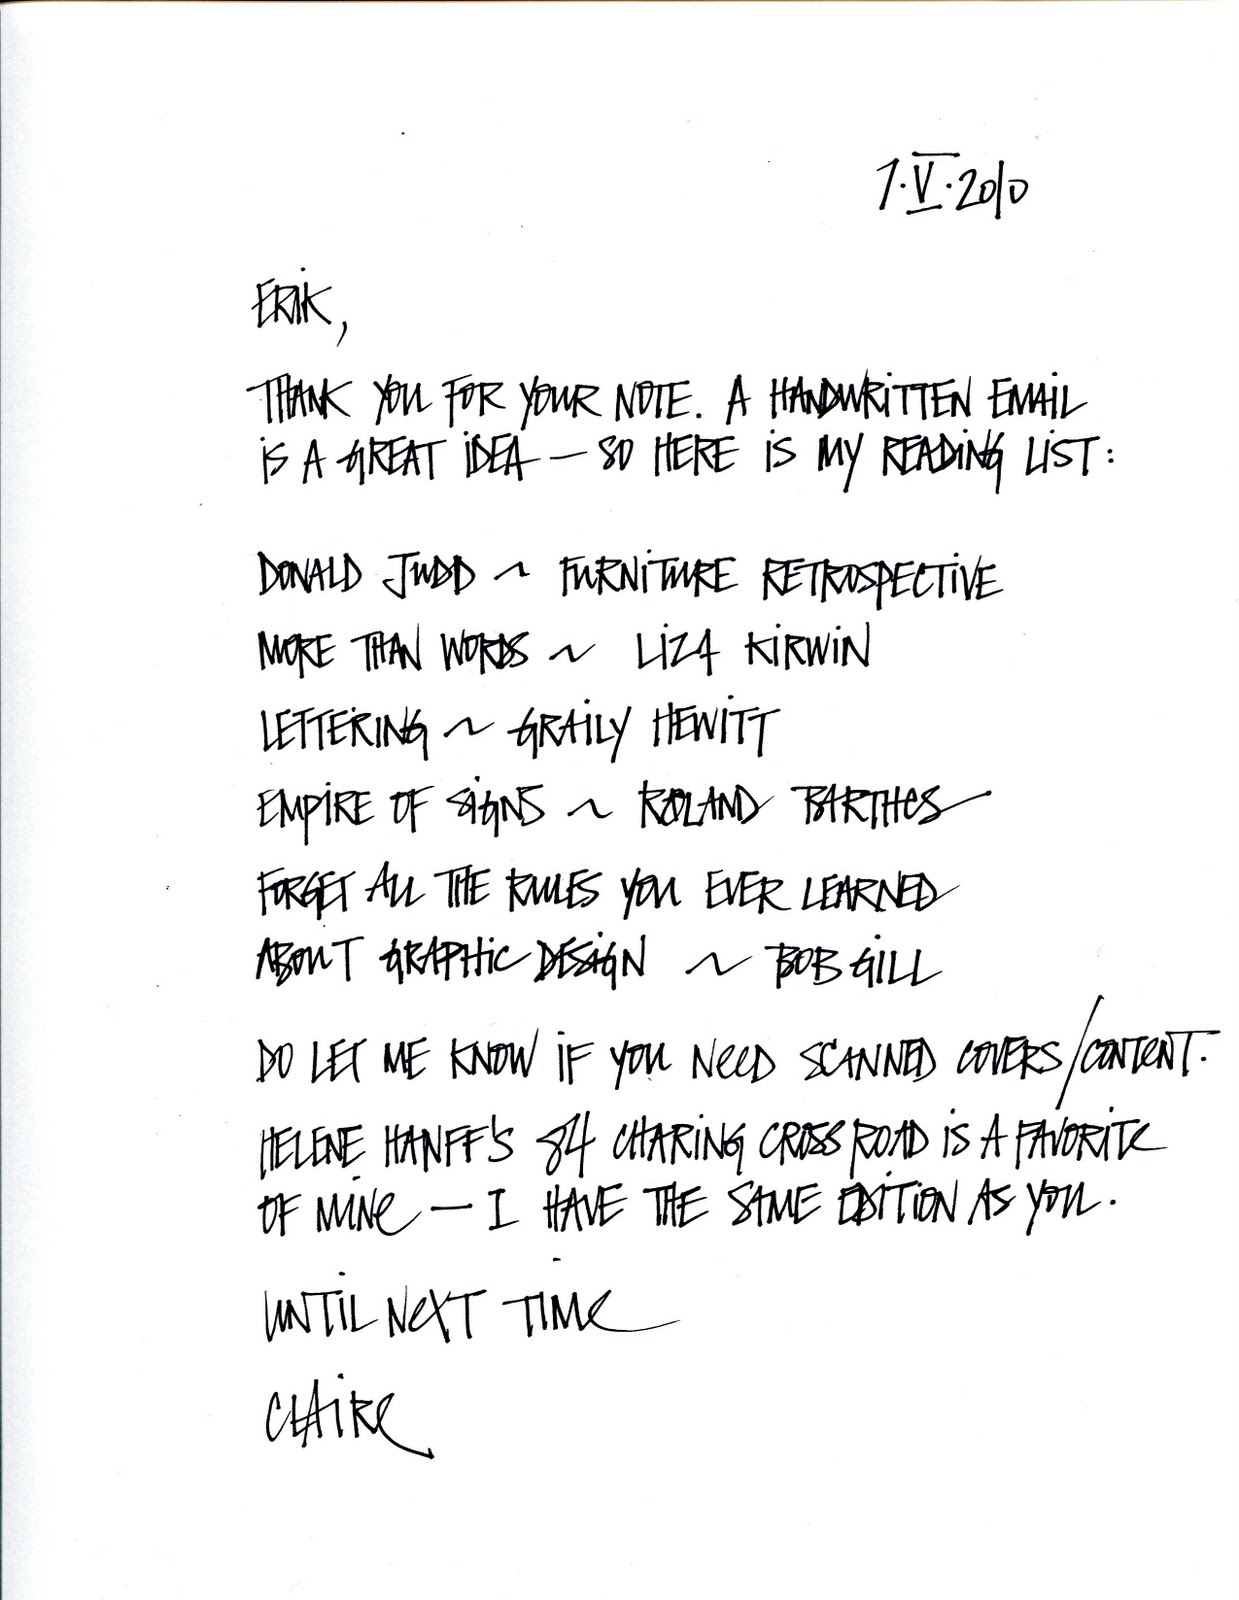 7·V·2010
ERIK,
THANK YOU FOR YOUR NOTE. A HANDWRITTEN EMAIL
IS A GREAT IDEA — SO HERE IS MY READING LIST:
DONALD JUDD ~ FURNITURE RETROSPECTIVE
MORE THAN WORDS ~ LIZA KIRWIN
LETTERING ~ GRAILY HEWITT
EMPIRE OF SIGNS ~ ROLAND BARTHES
FORGET ALL THE RULES YOU EVER LEARNED
ABOUT GRAPHIC DESIGN ~ BOB GILL
DO LET ME KNOW IF YOU NEED SCANNED COVERS/CONTENT.
HELENE HANFF'S 84 CHARING CROSS ROAD IS A FAVORITE
OF MINE — I HAVE THE SAME EDITION AS YOU.
UNTIL NEXT TIME
CLAIRE